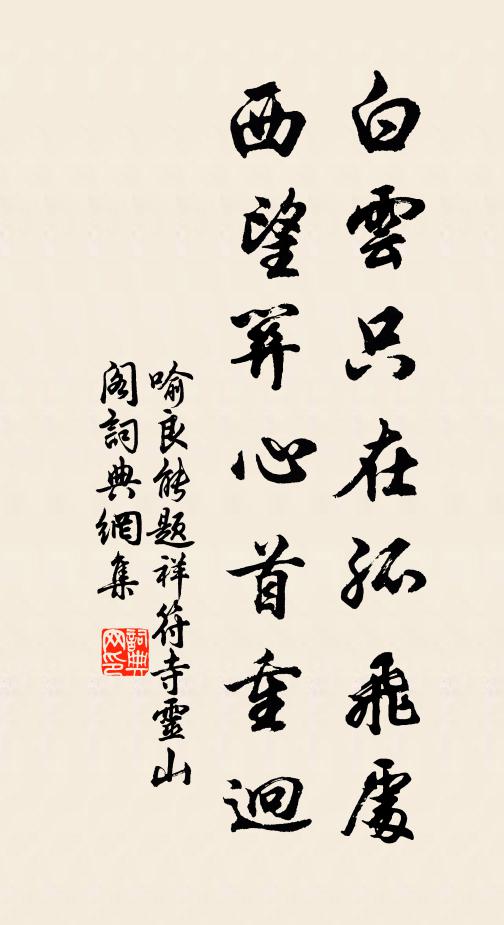 白雲只在孤飛處
西望關心首重迴
喻良能題祥符寺靈山
閣詞典網集
詞典網印